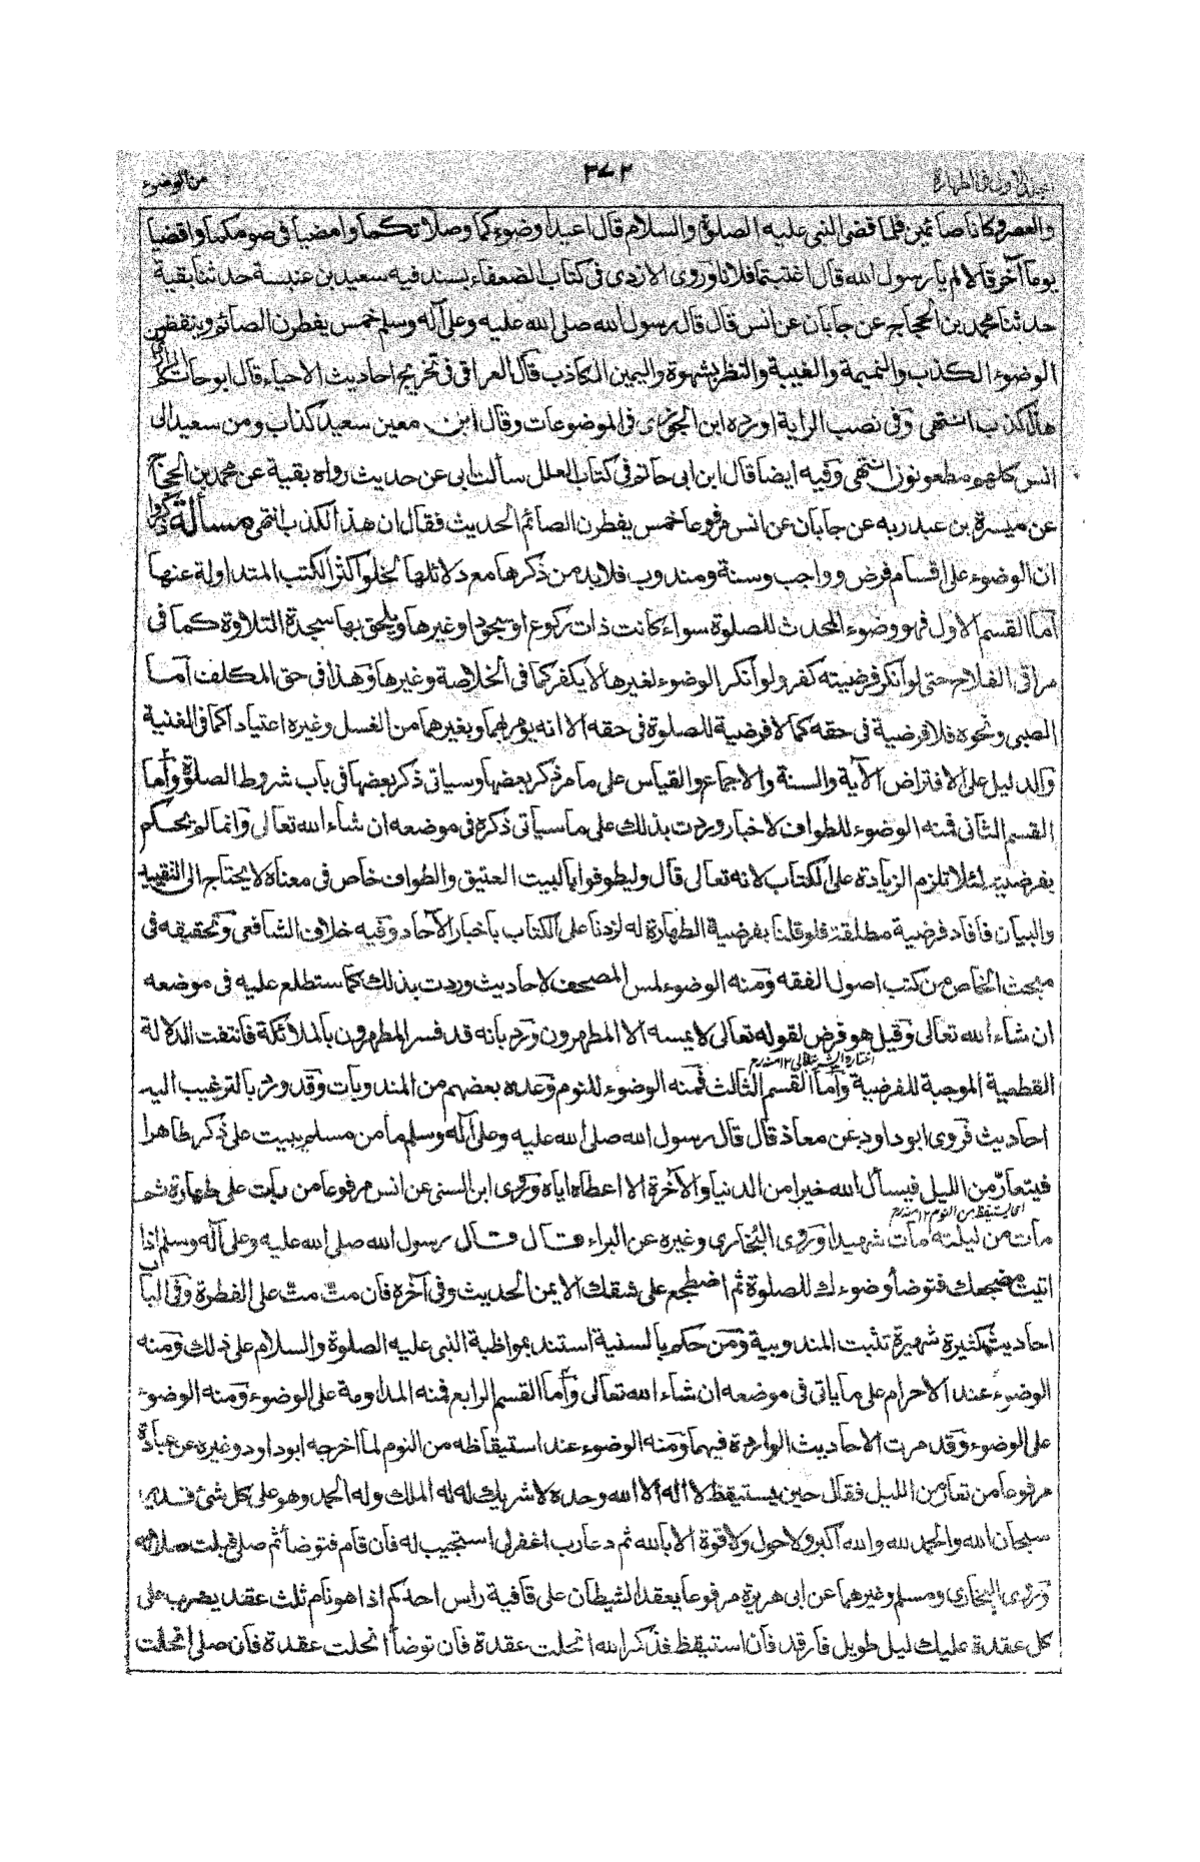 ٣٧٢
من الوضوء
والعصر وكانا صائمين فلما قضى النبي عليه الصلوة والسلام قال اعيدا وضوءكما وصلاتكما وامضيا في صومكما واقضيا
يوما آخر قالا لم يا رسول الله قال اغتبتما فلانا وروى الازدي في كتاب الضعفاء بسند فيه سعيد بن عنبسة حدثنا بقية
حدثنا محمد بن الحجاج عن جابان عن انس قال قال رسول الله صلى الله عليه وعلى آله وسلم خمس يفطرن الصائم وينقضن
الوضوء الكذب والنميمة والغيبة والنظر بشهوة واليمين الكاذب قال العراقي في تخريج احاديث الاحياء قال ابو حاتم
هذا كذب انتهى وفي نصب الراية اورده ابن الجوزي في الموضوعات وقال ابن معين سعيد كذاب ومن سعيد الى
انس كلهم مطعونون انتهى وفيه ايضا قال ابن ابي حاتم في كتاب العلل سألت ابي عن حديث رواه بقية عن محمد بن الحجاج
عن ميسرة بن عبد ربه عن جابان عن انس مرفوعا خمس يفطرن الصائم الحديث فقال ان هذا الكذب انتهى مسألة ذكروا
ان الوضوء على اقسام فرض وواجب وسنة ومندوب فلابد من ذكرها مع دلائلها لخلو اكثر الكتب المتداولة عنها
اما القسم الاول فهو وضوء المحدث للصلوة سواء كانت ذات ركوع او سجود او غيرها ويلحق بها سجدة التلاوة كما في
مراقي الفلاح حتى لو انكر فرضيته كفر ولو انكر الوضوء لغيرها لا يكفر كما في الخلاصة وغيرها وهذا في حق المكلف اما
الصبي ونحوه فلا فرضية في حقه كما لا فرضية للصلوة في حقه الا انه يؤمر بهما وبغيرهما من الغسل وغيره اعتيادا كما في الغنية
والدليل على الافتراض الآية والسنة والاجماع والقياس على ما مر ذكر بعضها وسياتي ذكر بعضها في باب شروط الصلوة واما
القسم الثاني فمنه الوضوء للطواف لاخبار وردت بذلك على ما سياتي ذكره في موضعه ان شاء الله تعالى وانما لم يحكم
بفرضيته لئلا تلزم الزيادة على الكتاب لانه تعالى قال وليطوفوا بالبيت العتيق والطواف خاص في معناه لا يحتاج الى التقييد
والبيان فافاد فرضية مطلقة فلو قلنا بفرضية الطهارة له لزدنا على الكتاب باخبار الآحاد وفيه خلاف الشافعي وتحقيقه في
مبحث الخاص من كتب اصول الفقه ومنه الوضوء لمس المصحف لاحاديث وردت بذلك كما ستطلع عليه في موضعه
ان شاء الله تعالى وقيل هو فرض لقوله تعالى لا يمسه الا المطهرون ورد بانه قد فسر المطهرون بالملائكة فانتفت الدلالة
القطعية الموجبة للفرضية واما القسم الثالث فمنه الوضوء للنوم وعده بعضهم من المندوبات وقد ورد بالترغيب اليه
احاديث فروى ابو داود عن معاذ قال قال رسول الله صلى الله عليه وعلى آله وسلم ما من مسلم يبيت على ذكر طاهرا
فيتعار من الليل فيسأل الله خيرا من الدنيا والآخرة الا اعطاه اياه وروى ابن السني عن انس مرفوعا من بات على طهارة ثم
اي يستيقظ من النوم ١٢ منه رح
مات من ليلته مات شهيدا وروى البخاري وغيره عن البراء قال قال رسول الله صلى الله عليه وعلى آله وسلم اذا
اتيت مضجعك فتوضأ وضوءك للصلوة ثم اضطجع على شقك الايمن الحديث وفي آخره فان مت مت على الفطرة وفي الباب
احاديث كثيرة شهيرة تثبت المندوبية ومن حكم بالسنية استند بمواظبة النبي عليه الصلوة والسلام على ذلك ومنه
الوضوء عند الاحرام على ما ياتي في موضعه ان شاء الله تعالى واما القسم الرابع فمنه المداومة على الوضوء ومنه الوضوء
على الوضوء وقد مرت الاحاديث الواردة فيهما ومنه الوضوء عند استيقاظه من النوم لما اخرجه ابو داود وغيره عن عبادة
مرفوعا من تعار من الليل فقال حين يستيقظ لا اله الا الله وحده لا شريك له له الملك وله الحمد وهو على كل شئ قدير
سبحان الله والحمد لله والله اكبر ولا حول ولا قوة الا بالله ثم دعا رب اغفر لي استجيب له فان قام فتوضأ ثم صلى قبلت صلاته
وروى البخاري ومسلم وغيرهما عن ابي هريرة مرفوعا يعقد الشيطان على قافية راس احدكم اذا هو نام ثلث عقد يضرب على
كل عقدة عليك ليل طويل فارقد فان استيقظ فذكر الله انحلت عقدة فان توضأ انحلت عقدة فان صلى انحلت